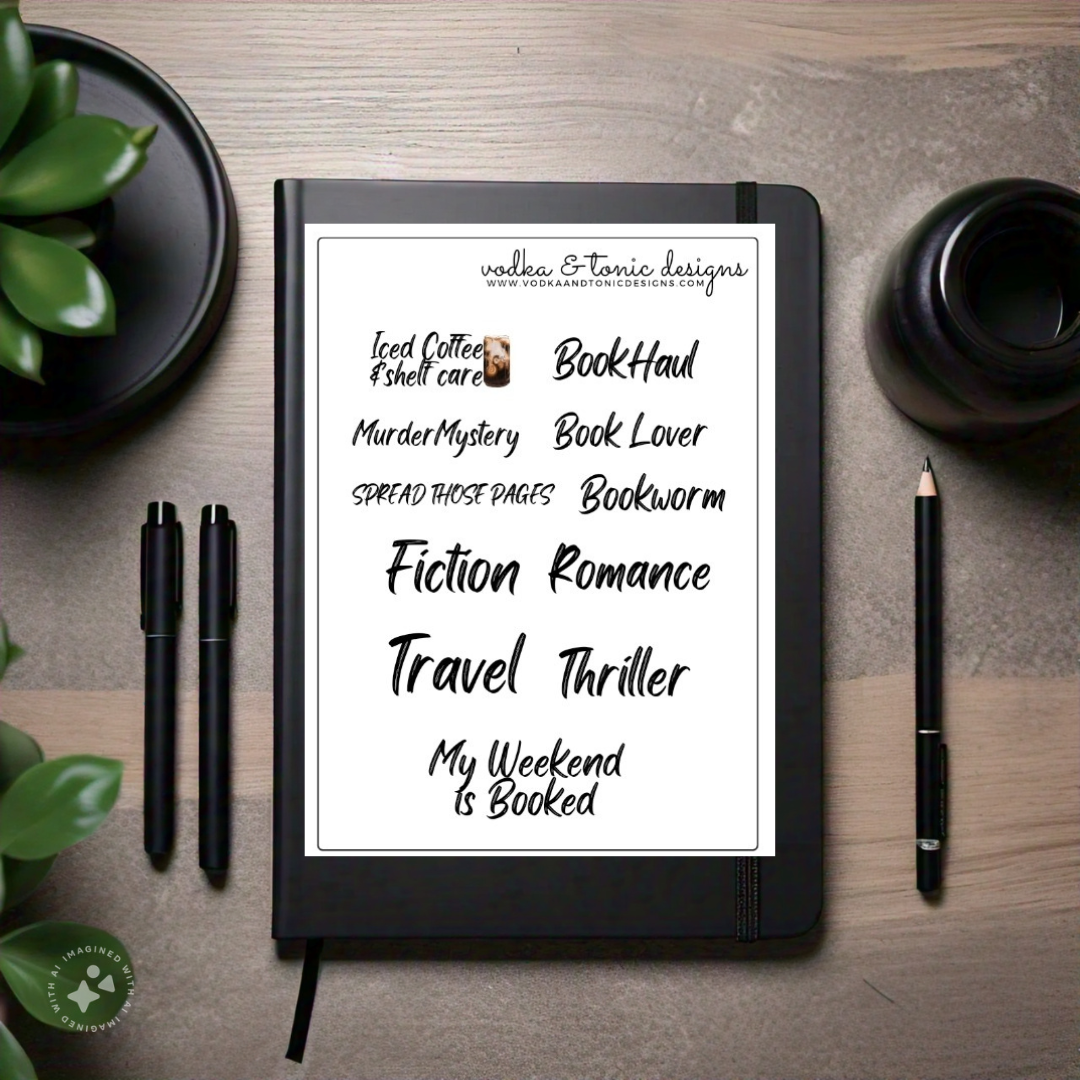 vodka & tonic designs
WWW.VODKAANDTONICDESIGNS.COM
Iced Coffee
& shelf care
BookHaul
MurderMystery
Book Lover
SPREAD THOSE PAGES
Bookworm
Fiction
Romance
Travel
Thriller
My Weekend
is Booked
IMAGINED WITH AI IMAGINED WITH AI